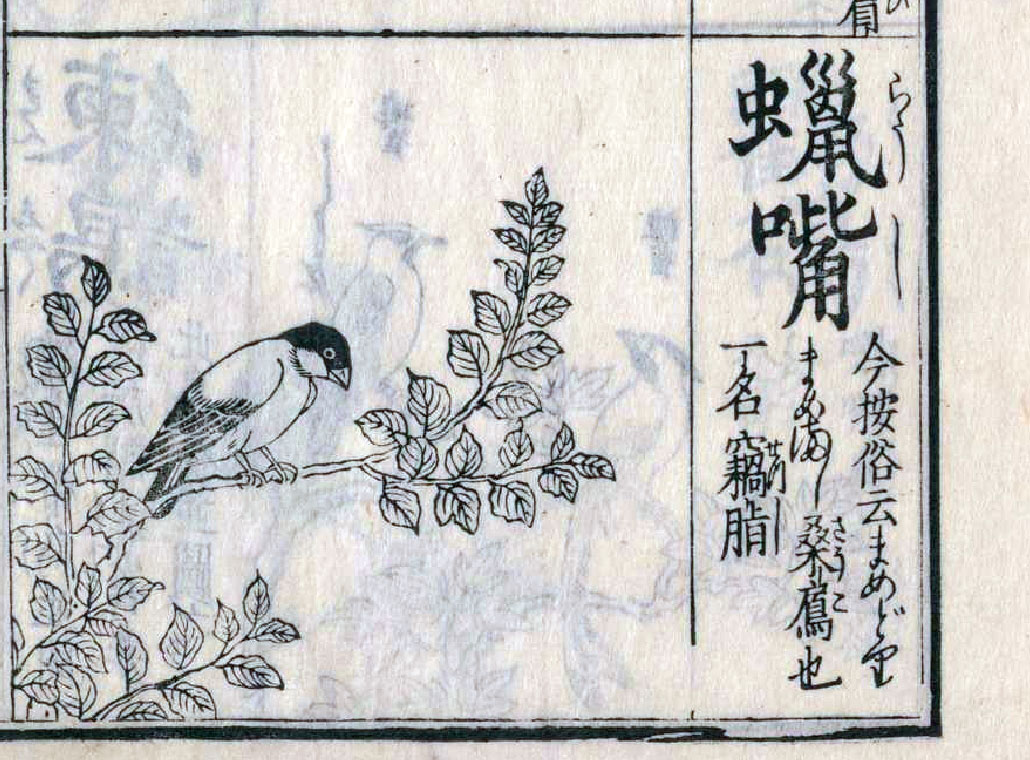 蠟嘴
らうし
今按俗云まめどり
まめまはし桑鳸也
さうこ
一名竊脂
せつし